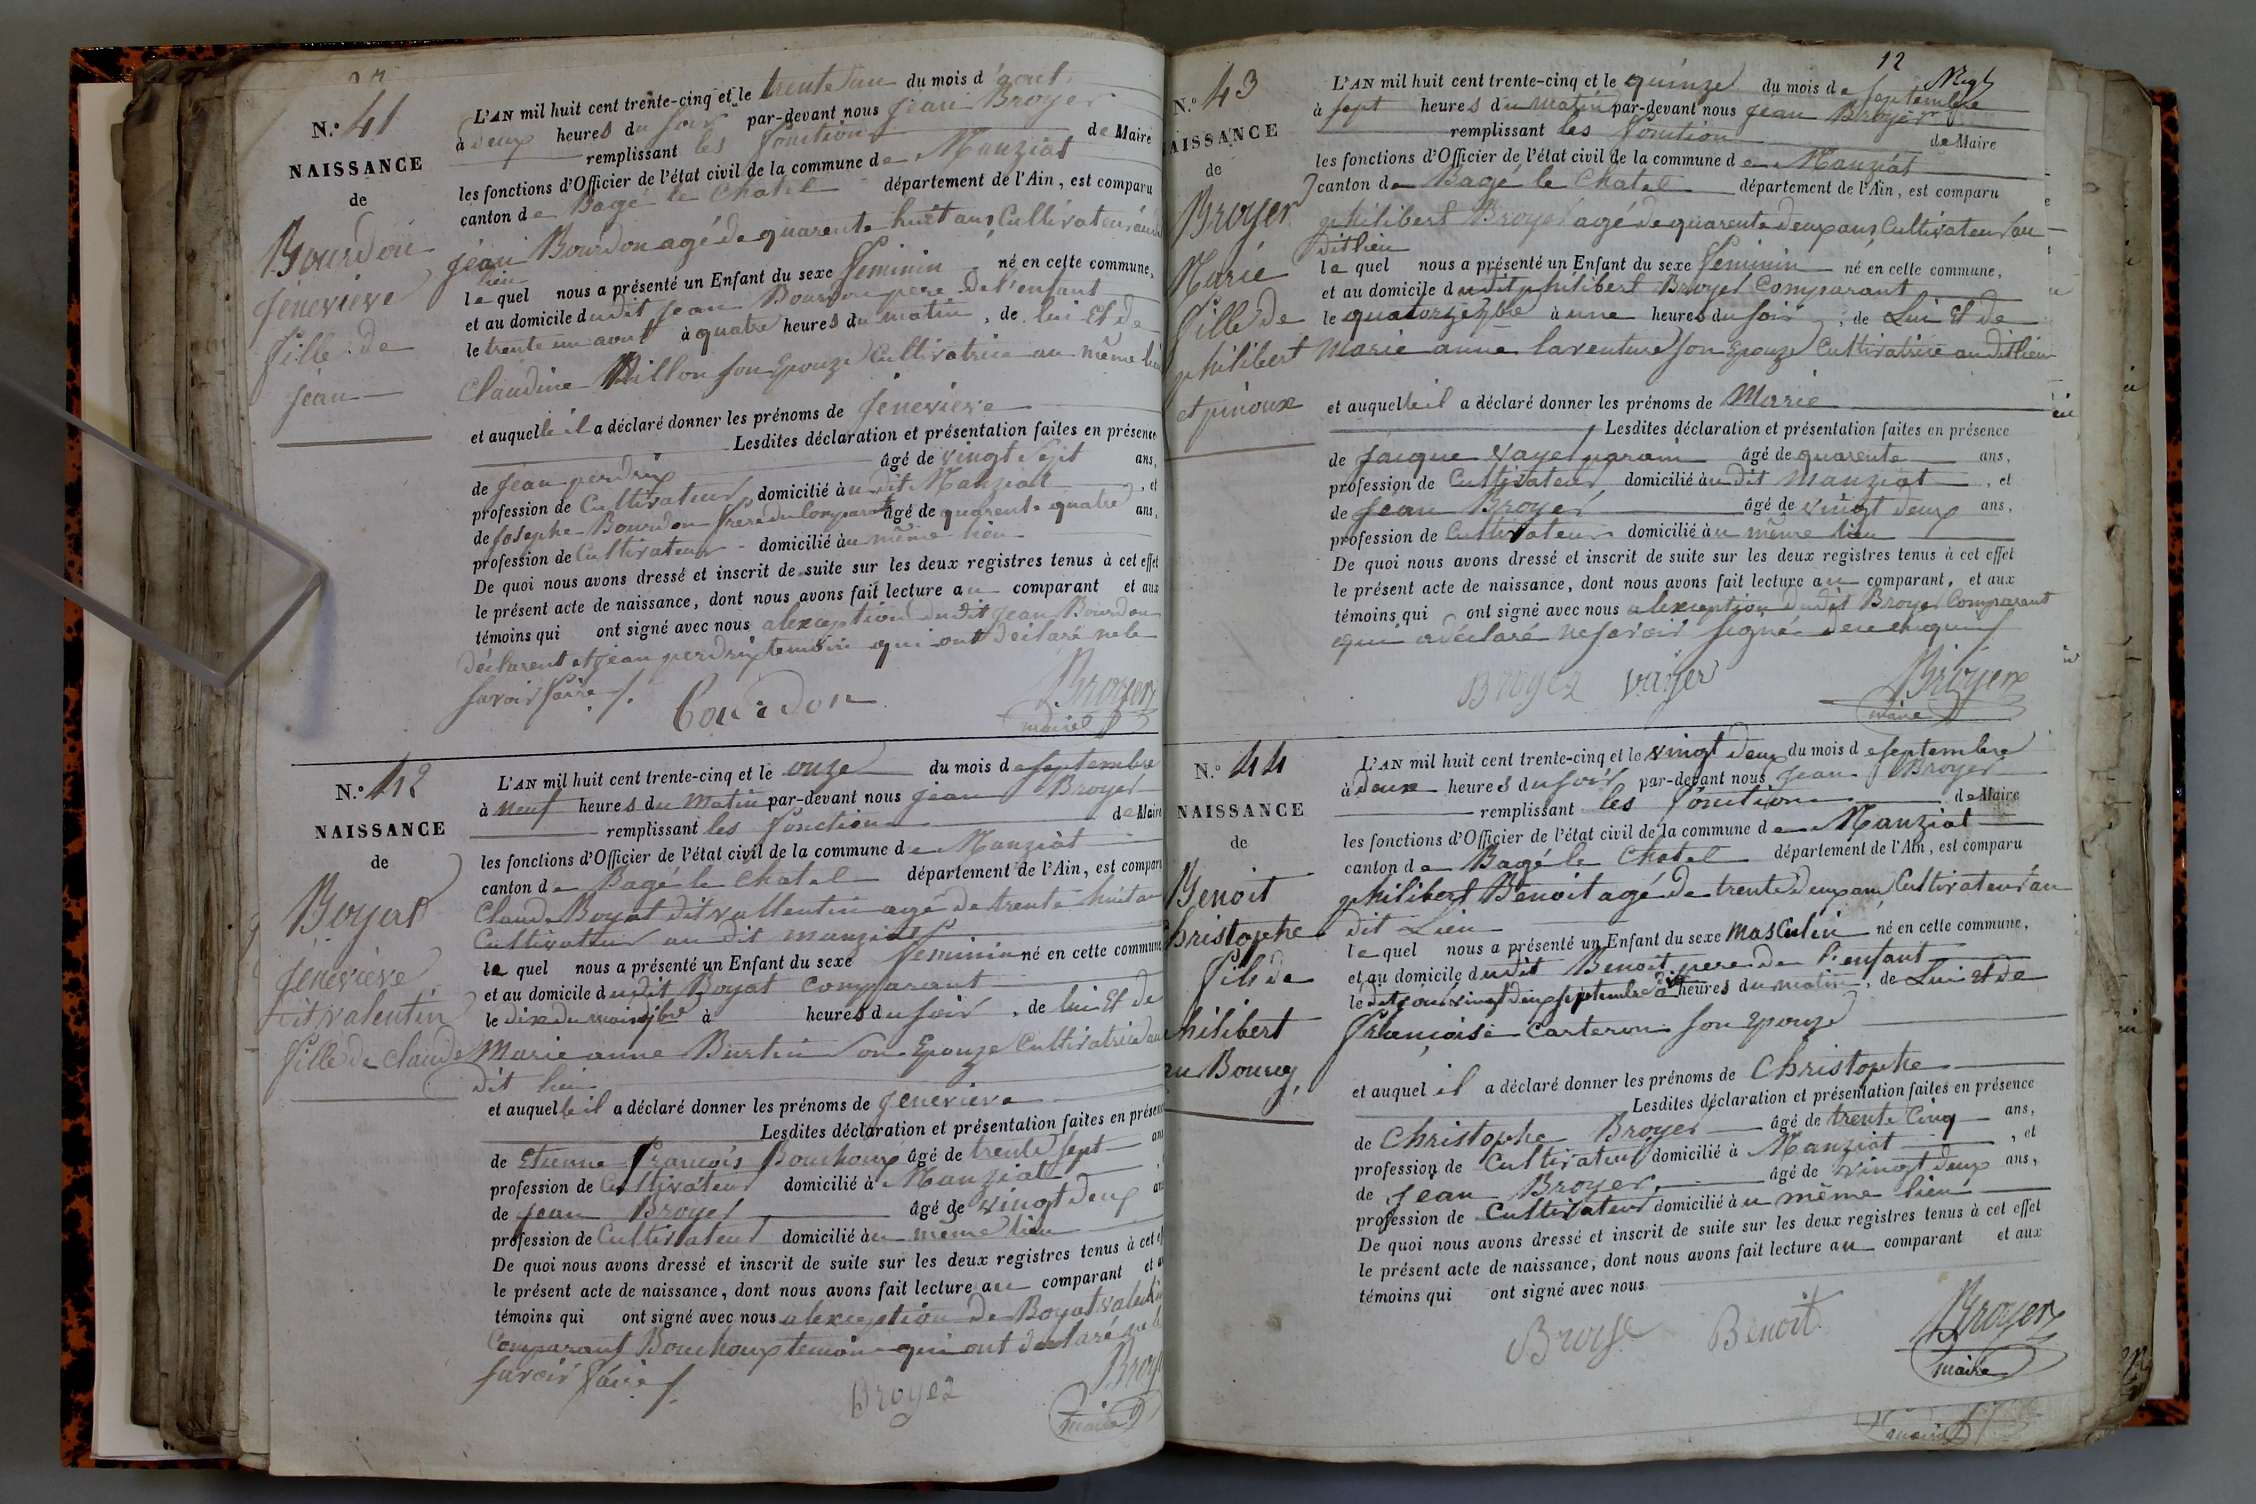 N.° 41
NAISSANCE
de
Bourdon
Jenevieve
fille de
Jean
L'AN mil huit cent trente-cinq et le trente un du mois d'aout
à deux heures du soir par-devant nous Jean Broyer
remplissant les fonction de Maire
les fonctions d'Officier de l'état civil de la commune de Manziat
canton de Bagé le Chatel département de l'Ain, est comparu
Jean Bourdon agé de quarente huit ans Cultivateur au dit
lieu
le quel nous a présenté un Enfant du sexe feminin né en cette commune,
et au domicile dudit Jean Bourdon pere de l'enfant
le trente un aout à quatre heures du matin, de lui Et de
Claudine Millon son Epouze Cultivatrice au même lieu
et auquelle il a déclaré donner les prénoms de Jenevieve
Lesdites déclaration et présentation faites en présence
de Jean perdrix âgé de vingt Sept ans,
profession de Cultivateur domicilié àu dit Manziat, et
de Josephe Bourdon frere du Comparant âgé de quarente quatre ans,
profession de Cultivateur domicilié àu même lieu
De quoi nous avons dressé et inscrit de suite sur les deux registres tenus à cet effet
le présent acte de naissance, dont nous avons fait lecture au comparant et aux
témoins qui ont signé avec nous alexception du dit Jean Bourdon
déclarent et Jean perdrix temoin qui ont déclaré ne le
savoir faire
Bourdon Broyer
maire
N.° 42
NAISSANCE
de
Boyat
Jenevieve
dit valentin
fille de Claude
L'AN mil huit cent trente-cinq et le onze du mois de septembre
à neuf heures du matin par-devant nous Jean Broyer
remplissant les fonction de Maire
les fonctions d'Officier de l'état civil de la commune de Manziat
canton de Bagé le Chatel département de l'Ain, est comparu
Claude Boyat dit vallentin agé de trente huit an
Cultivateur au dit manziat
le quel nous a présenté un Enfant du sexe feminin né en cette commune
et au domicile dudit Boyat comparant
le dix du mois à heures du soir, de lui Et de
Marie anne Burtin son Epouze Cultivatrice au
dit lieu
et auquelle il a déclaré donner les prénoms de Jenevieve
Lesdites déclaration et présentation faites en présence
de Etienne francois Bouchoux âgé de trente sept ans
profession de Cultivateur domicilié à Manziat
de Jean Broyer âgé de vingt deux ans
profession de Cultivateur domicilié àu même lieu
De quoi nous avons dressé et inscrit de suite sur les deux registres tenus à cet ef
le présent acte de naissance, dont nous avons fait lecture au comparant et au
témoins qui ont signé avec nous alexception de Boyat valentin
Comparant Bouchoux temoin qui ont declaré ne le
savoir faire
Broyer Broye
maire
12
N.° 43
NAISSANCE
de
Broyer
Marie
fille de
philibert
et pinoux
L'AN mil huit cent trente-cinq et le quinze du mois de septembre
à sept heures du matin par-devant nous Jean Broyer
remplissant les fonction de Maire
les fonctions d'Officier de l'état civil de la commune de Manziat
canton de Bagé le Chatel département de l'Ain, est comparu
philibert Broyer agé de quarente deux ans Cultivateur au
dit lieu
le quel nous a présenté un Enfant du sexe feminin né en cette commune,
et au domicile dudit philibert Broyer Comparant
le quatorze 7bre à une heures du soir, de Lui Et de
Marie anne laventure son Epouze Cultivatrice au dit lieu
et auquelle il a déclaré donner les prénoms de Marie
Lesdites déclaration et présentation faites en présence
de Jacque vayer parain âgé de quarente ans,
profession de Cultivateur domicilié àu dit Manziat, et
de Jean Broyer âgé de vingt deux ans,
profession de Cultivateur domicilié àu même lieu
De quoi nous avons dressé et inscrit de suite sur les deux registres tenus à cet effet
le présent acte de naissance, dont nous avons fait lecture au comparant, et aux
témoins qui ont signé avec nous alexception dudit Broyer Comparant
qui a déclaré ne savoir signé de ce enquis
Broyer vayer Broyer
maire
N.° 44
NAISSANCE
de
Benoit
Christophe
fils de
philibert
au Bourg
L'AN mil huit cent trente-cinq et le vingt deux du mois de septembre
à deux heures du soir par-devant nous Jean Broyer
remplissant les fonction de Maire
les fonctions d'Officier de l'état civil de la commune de Manziat
canton de Bagé le Chatel département de l'Ain, est comparu
philibert Benoit agé de trente deux ans Cultivateur au
dit Lieu
le quel nous a présenté un Enfant du sexe masculin né en cette commune,
et au domicile dudit Benoit pere de l'enfant
le dit jour vingt deux septembre à heures du matin, de Lui et de
françoise Carteron son Epouze
et auquel il a déclaré donner les prénoms de Christophe
Lesdites déclaration et présentation faites en présence
de Christophe Broyer âgé de trente Cinq ans,
profession de Cultivateur domicilié à Manziat, et
de Jean Broyer âgé de vingt deux ans,
profession de Cultivateur domicilié àu même lieu
De quoi nous avons dressé et inscrit de suite sur les deux registres tenus à cet effet
le présent acte de naissance, dont nous avons fait lecture au comparant et aux
témoins qui ont signé avec nous
Broye Benoit Broyer
maire